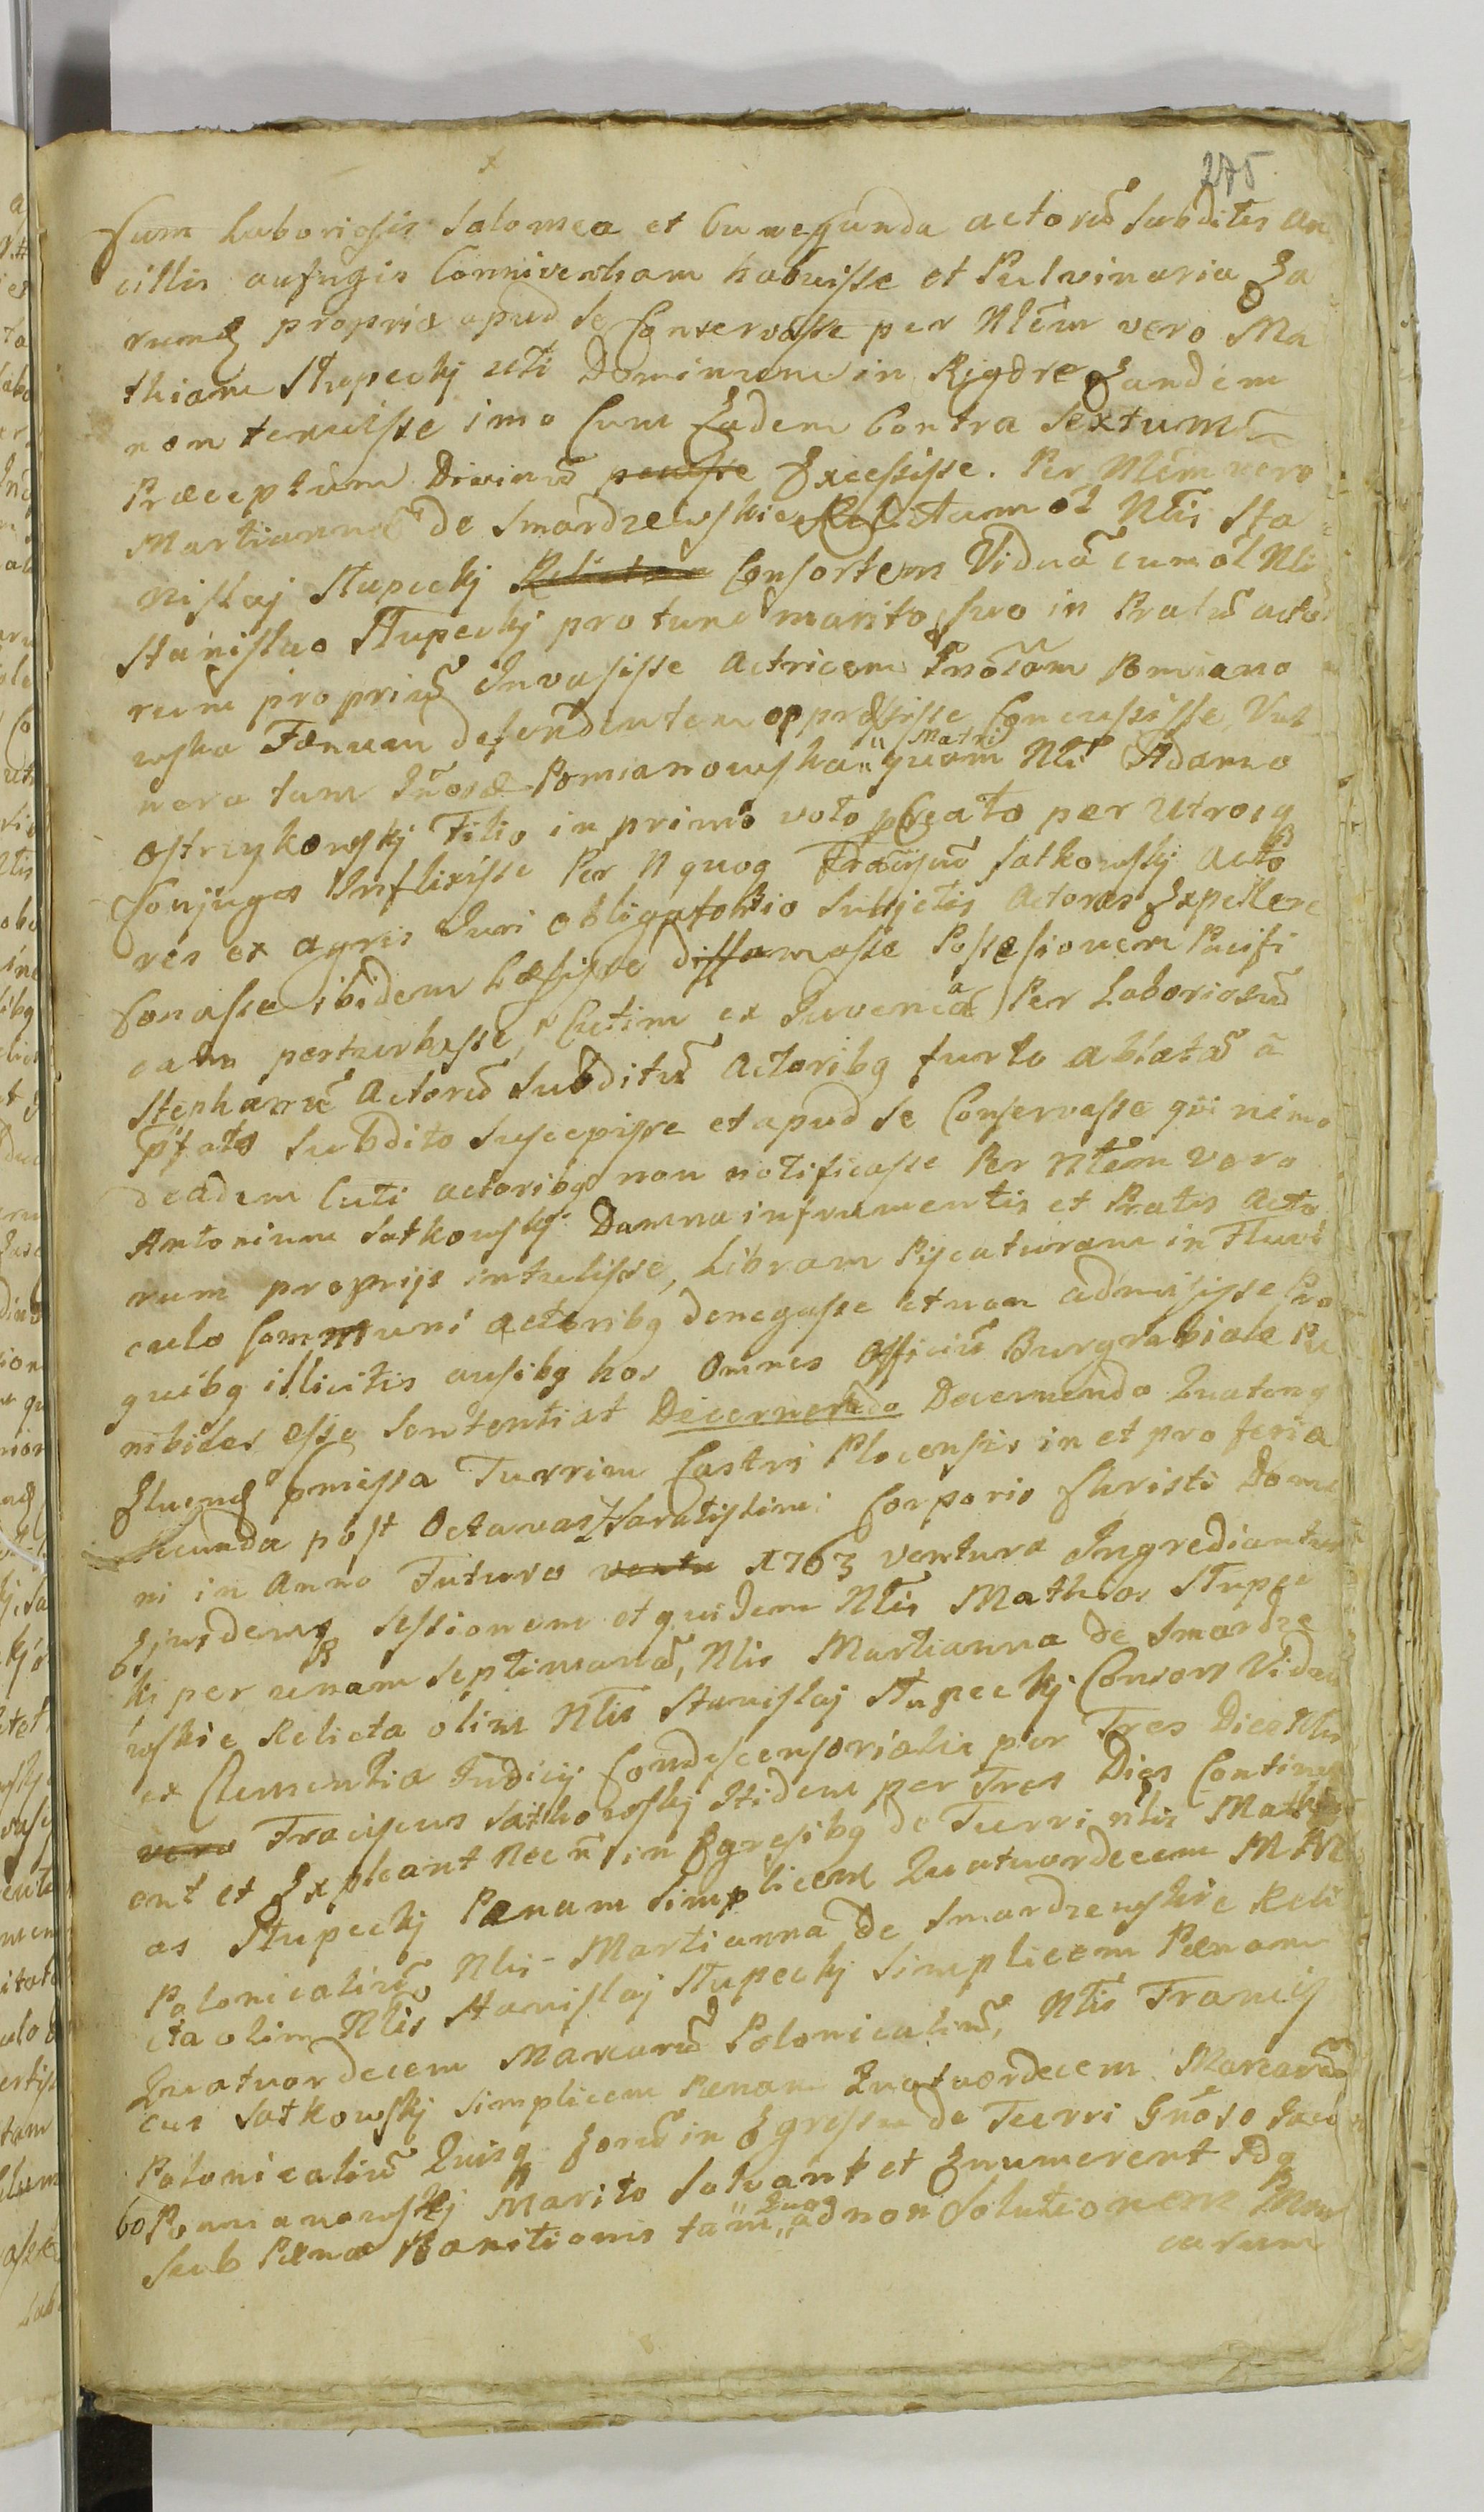 275
Cum Laboriosis Salomea et Cunegunda actorũ Subditis an
cillis aufugis Conniventiam habuisse et Pulvinaria Ea
rumq propria apud se Conservasse per Nlem vero Ma
thiam Stupeckj uti Dominum in Rigore Eandem
non tenuisse imo Cum Eadem Contra Sextum
Præceptum Divinũ Excessisse. Per Nlem vero
Martiannã de Smardzewskie Relictam ol Nlis Sta
nislaj Stupeckj Relictam Consortem Viduã cum ol Nli
Stanislao Stupeckj pro tunc marito suo in Pratũ acto
rum propriũ Invasisse Actricem Gnosam Pomiano
wska Fænum defendentem oppressisse Concussisse, Vul
nera tam Gnosæ Pomianowska Matri quam Nli Adamo
Ostrzykowskj Filio in primo voto pcreato per Utrosq
Conjuges Inflixisse Per N quoq Franciscũ Satkowskj acto
res ex agris Juri obligatorio Subjectis Actores Expellere
Conasse ibidem Læsisse diffamasse Possesionem Pacifi
cam perturbasse, Cutim ex Juvenca Per Laboriosũ
Stephanũ Actorũ Subditũ Actoribq furto ablatã a
pfato Subdito Suscepisse et apud se Conservasse qũinimo
de eadem Cuti actoribq non notificasse Per Nlem vero
Antonium Satkowskj Damna in frumentis et Pratis Acto
rum proprijs intulisse, Libram Piscaturam in Fluvi
culo Communi actoribq denegasse et non admisisse Pro
quibq illicitis ausibq hos Omnes Officiũ Burgrabiale Pu
nibiles esse Sentential Decernendo Decernendo Quatenq
Eluendo pmissa Turrim Castri Plocensis in et pro feria
Secunda post Octavas Sacratissimi Corporis Christi Domi
ni in Anno Futuro ventu 1763 ventura Ingrediantur
Ejusdemq sessionem et quidem Nlis Mathias Stupec
ki per unam septimanã, Nlis Martianna de Smardze
wskie Relicta olim Nlis Stanislaj Stupeckj Consors Vidua
ex Clementia Judicij Condescensorialis per Tres Dies Nlis
vero Franciscus Satkowskj itidem per Tres Dies Continu
ent et Expleant Necn in Egresibq de Turri Nlis Mathi
as Stupeckj Pænam Simplicem Quatuordecem MM
Polonicaliũ, Nlis Martianna de Smardzewskie Reli
cta olim Nlis Stanislaj Stupeckj Simplicem Pænam
Quatuordecem Marcarũ Polonicaliũ, Nlis Francis
cus Satkowskj simplicem Pænam Quatuordecem Marcarũ
Polonicaliũ Quisq Eorũ in Egressu de Turri Gnoso Jaco
bo Pomianowskj Marito Solvant et Enumerent Idq
Sub Pæna Banitionis tam Quoq ad non Solutionem Mar
carum